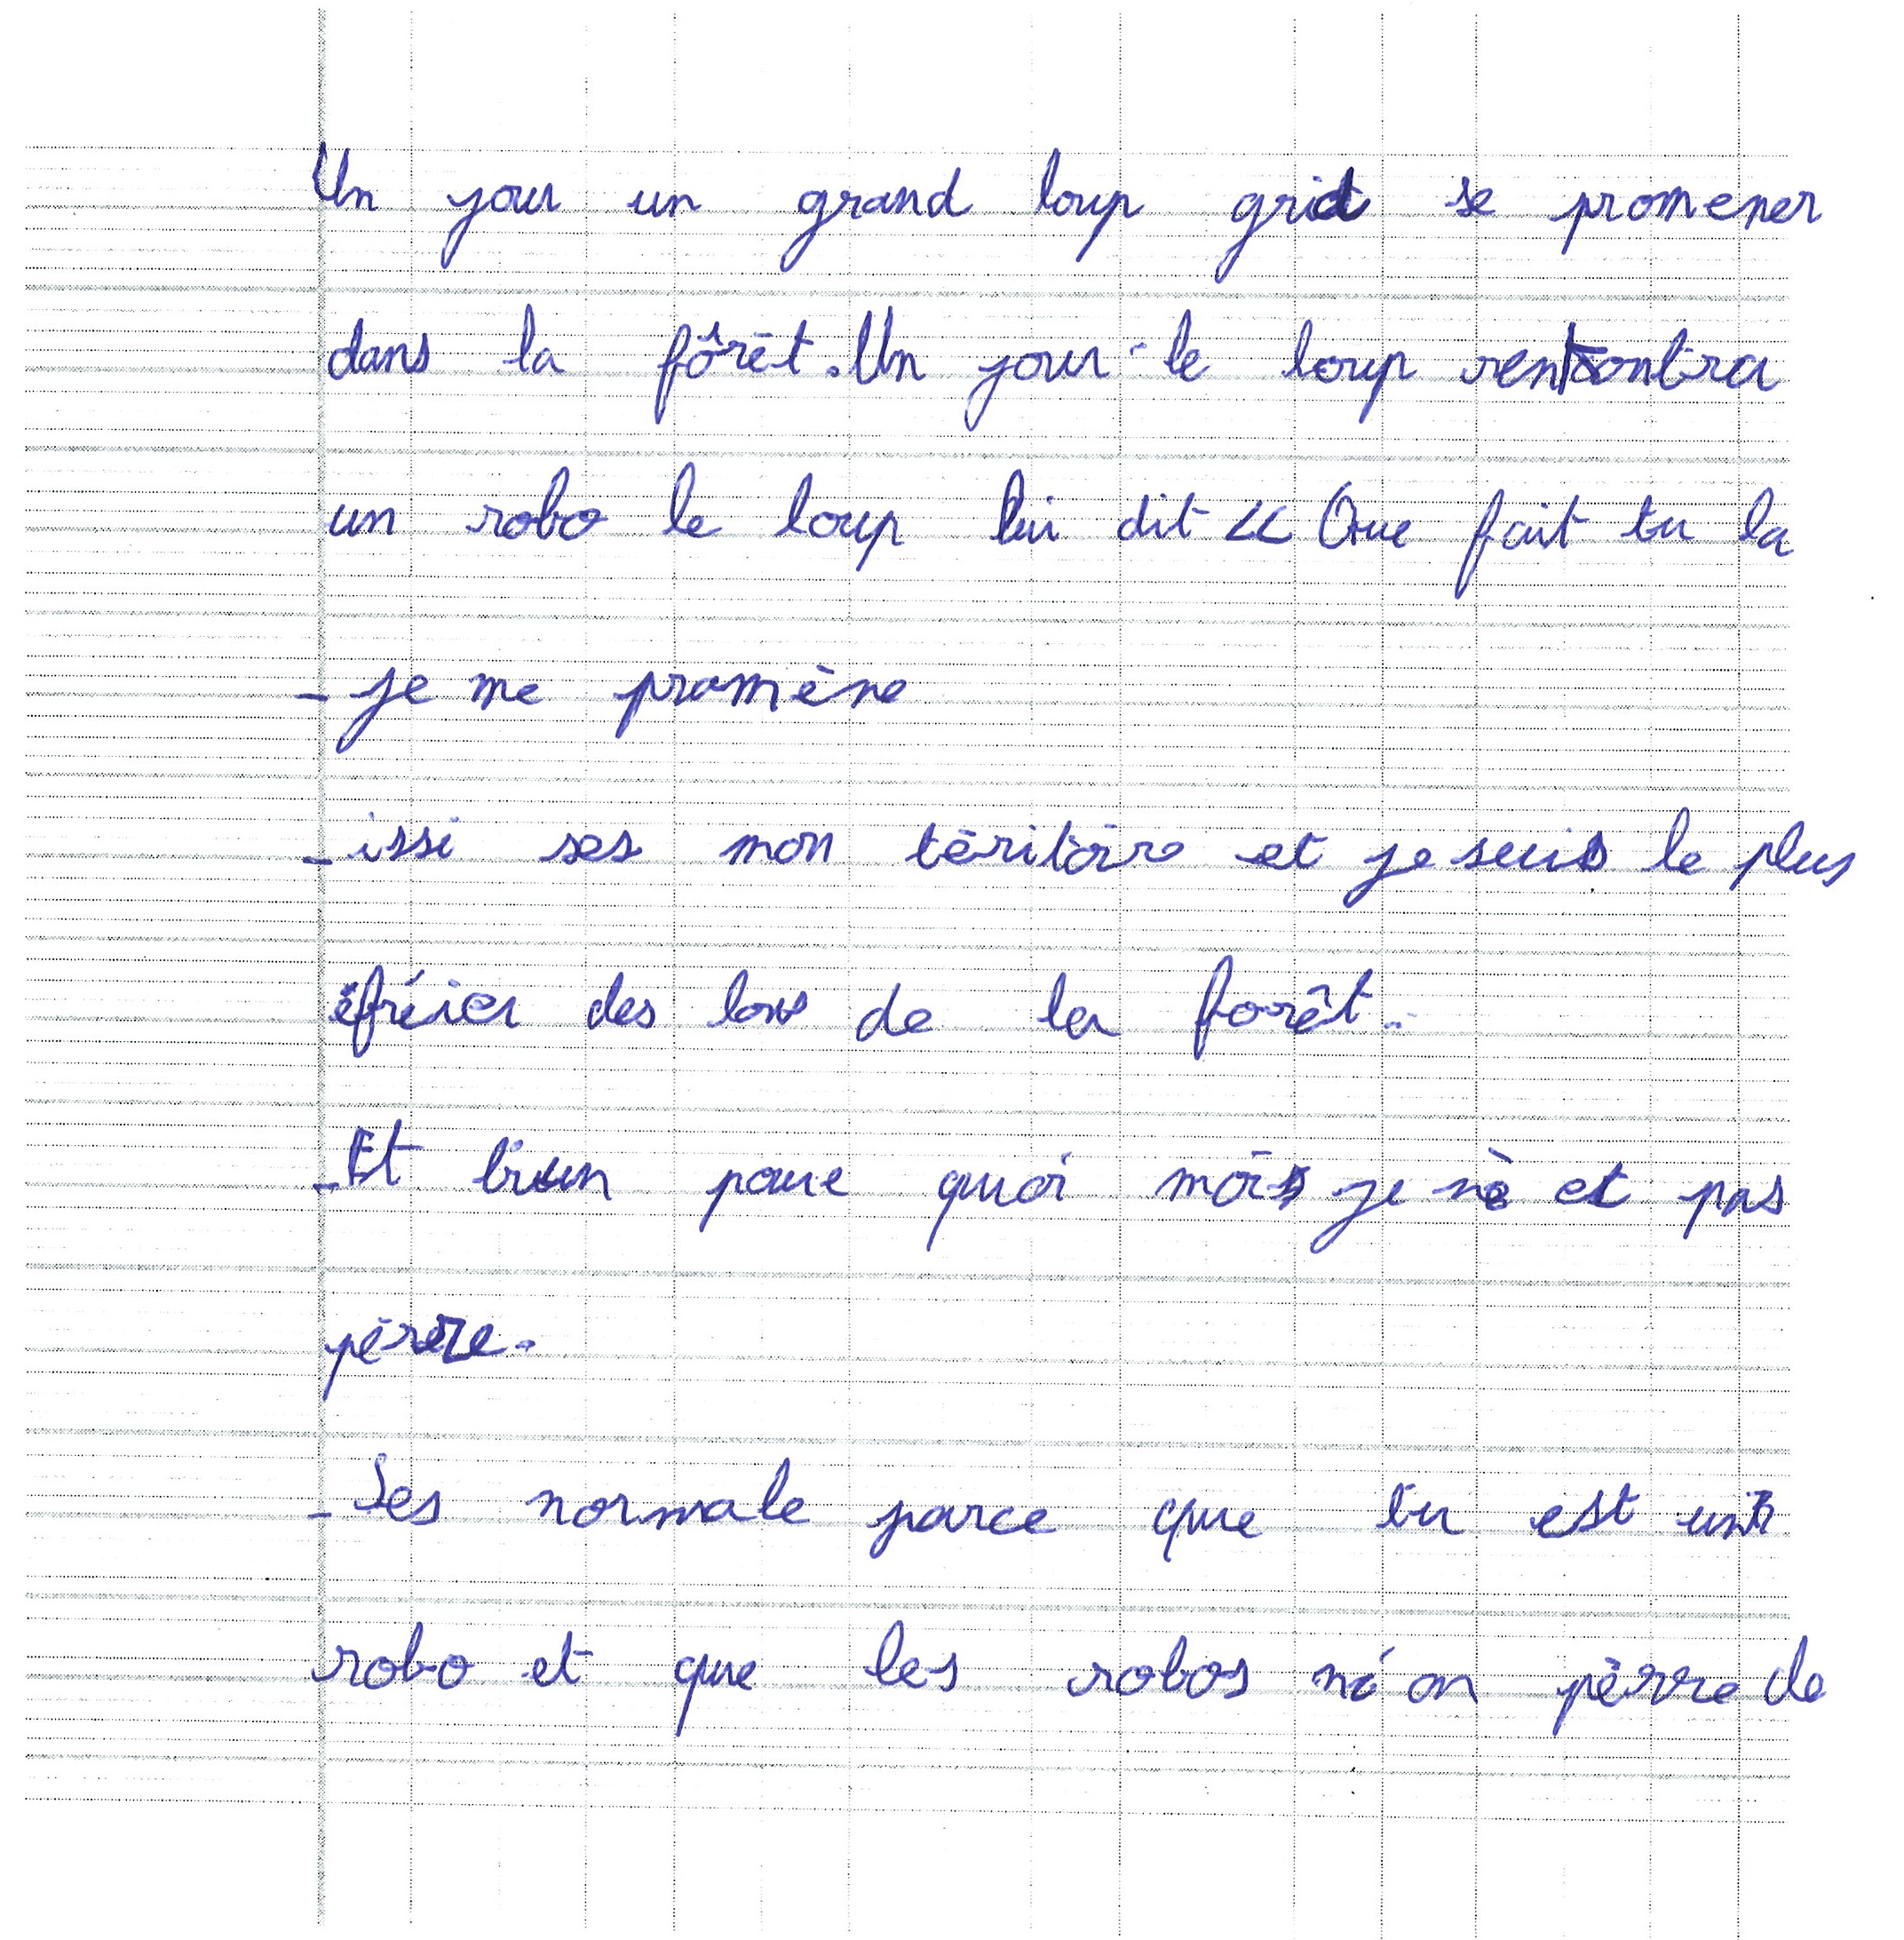 Un jour un grand loup grid se promener
dans la fôrêt. Un jour le loup rencontra
un robo le loup lui dit << Que fait tu la
- je me promène
- issi ses mon téritoire et je suis le plus
éfréier des lous de la forêt.
- Et bien poure quoi moi je nè et pas
pèrre.
- Ses normale parce que tu est un
robo et que les robos n'on pèrre de